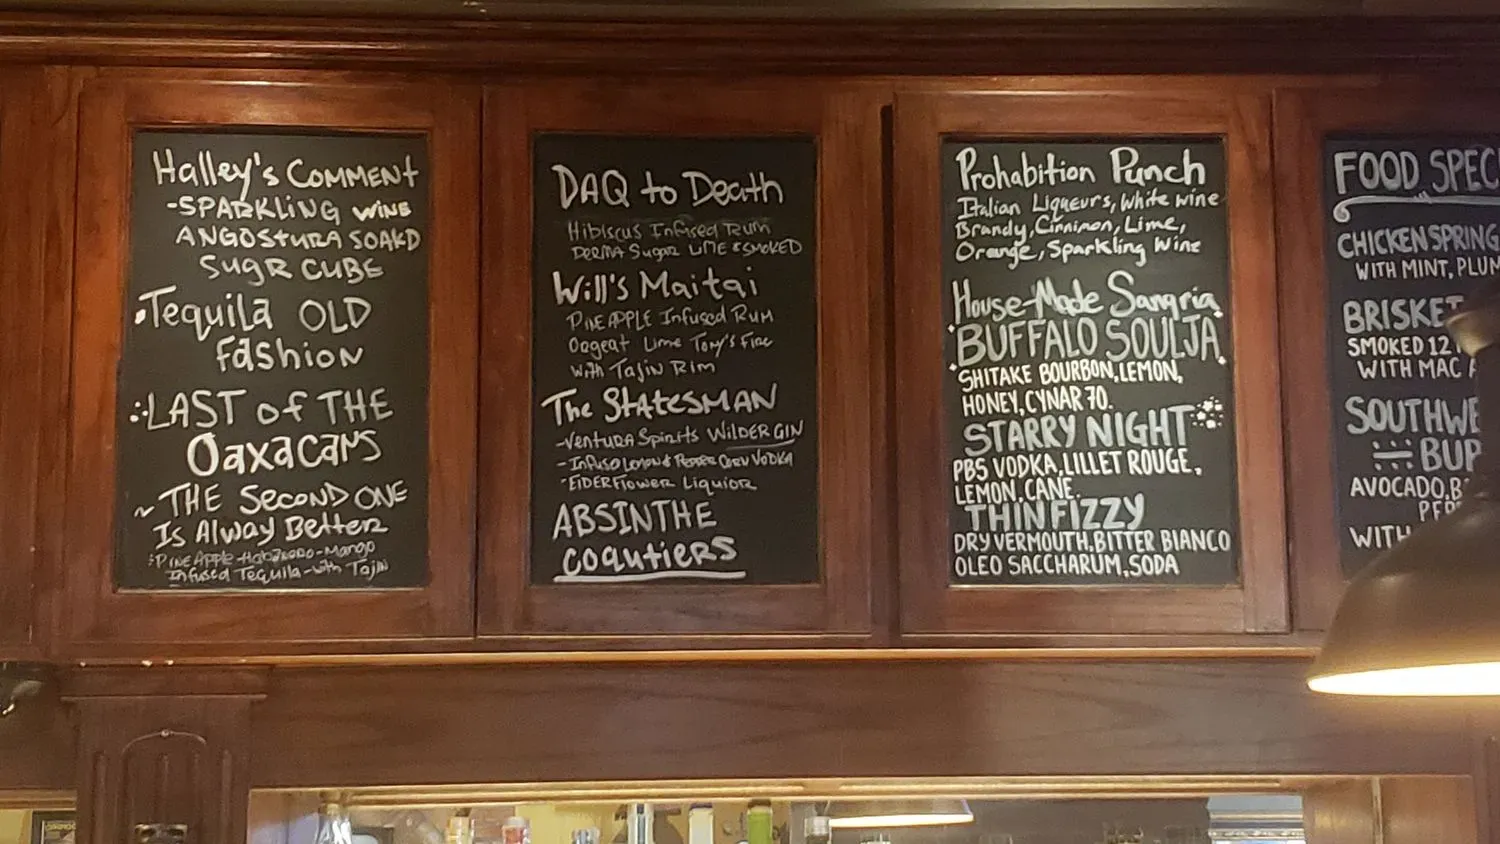 Halley's COMMENT
-SPARKLING WINE
ANGOSTURA SOAKD
SugR CUBE
Tequila OLD
fashion
LAST of THE
Oaxacans
~ THE Second ONE
Is Alway Better
PINEApple-Habanero-Mango
Infused Tequila-with Tajin
DAQ to Death
Hibiscus Infused Rum
Sugar LIME & SMOKED
Will's Maitai
PINEAPPLE Infused RUM
Orgeat Lime Tony's Fire
with TAJIN RIM
The STATESMAN
-VENTURA Spirits WILDER GIN
-Infuso Lemon & Pepper Corn VODKA
-ElDERFlower Liquior
ABSINTHE
COQUTIERS
Prohabition Punch
Italian Liqueurs, White wine
Brandy, Cinnimon, Lime,
Orange, Sparkling Wine
House-Made Sangria
BUFFALO SOULJA
SHITAKE BOURBON, LEMON,
HONEY, CYNAR 70.
STARRY NIGHT
PBS VODKA, LILLET ROUGE,
LEMON, CANE.
THIN FIZZY
DRY VERMOUTH, BITTER BIANCO
OLEO SACCHARUM, SODA
FOOD SPEC
CHICKEN SPRING
WITH MINT, PLUM
BRISKET
SMOKED 12
WITH MAC
SOUTHWE
BUR
AVOCADO, B
PEP
WITH